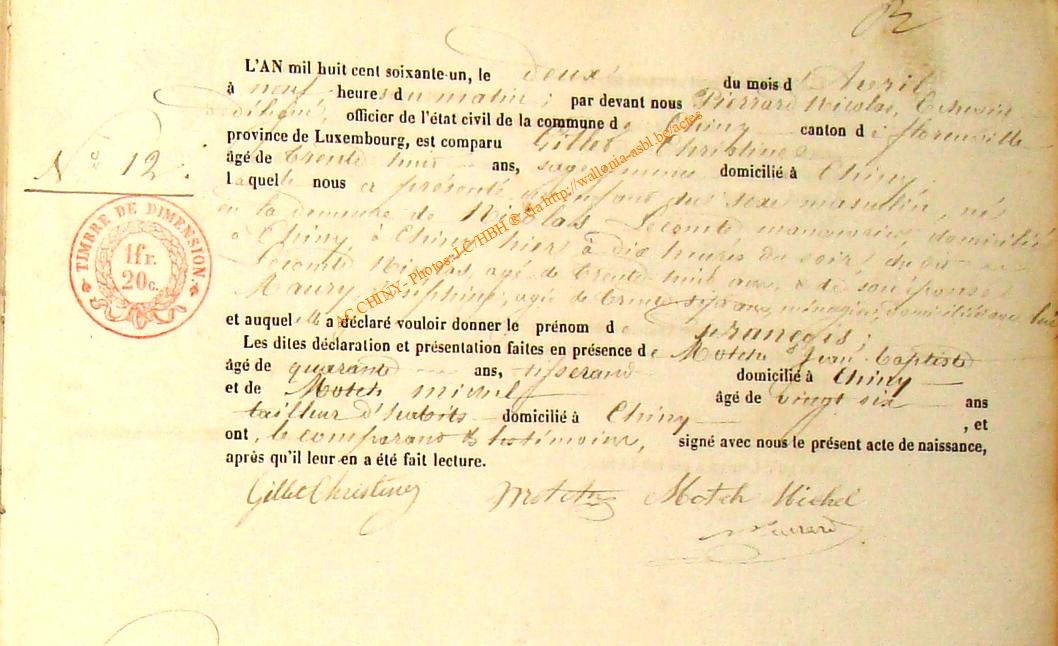 L'AN mil huit cent soixante-un, le deux du mois d'Avril
à neuf heures du matin; par devant nous Pierrard Nicolas, Echevin
délégué, officier de l'état civil de la commune de Chiny canton de florenville
province de Luxembourg, est comparu Gillet Christine
âgé de trente huit ans, sage femme domicilié à Chiny
laquelle nous a présenté un enfant du sexe masculin, né
en la demeure de Nicolas Lecomte manouvrier, domicilié
à Chiny, à Chiny hier à dix heures du soir, du dit
Lecomte Nicolas, agé de trente huit ans, & de son épouse
Maury Joséphine, agée de trente sept ans, ménagère, domiciliée avec lui
et auquel elle a déclaré vouloir donner le prénom de françois;
Les dites déclaration et présentation faites en présence de Motch Jean Baptiste
âgé de quarante ans, tisserand domicilié à Chiny
et de Motch michel âgé de vingt six ans
tailleur d'habits domicilié à Chiny, et
ont, le comparant & les témoins, signé avec nous le présent acte de naissance,
après qu'il leur en a été fait lecture.
N° 12.
TIMBRE DE DIMENSION
1 fr.
20 c.
Gillet Christine Motch Motch Michel
Pierrard
AC CHINY- Photos-LC/HBH ® via http://wallonia-asbl.be/actes